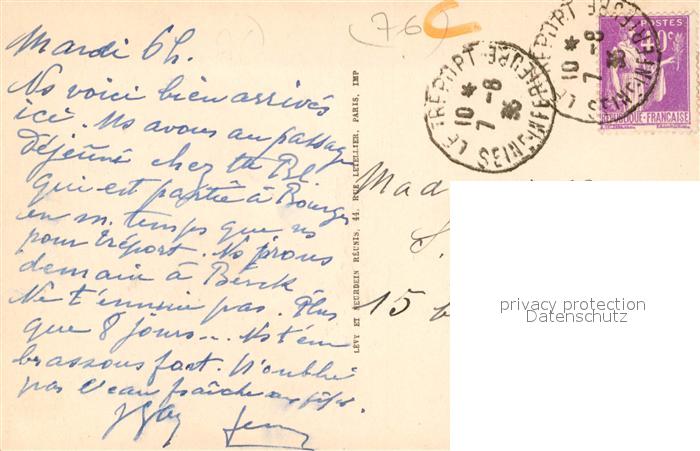 Mardi 6h.
Ns voici bien arrivés
ici. Ns avons au passage
déjeuné chez tte Bl.
qui est partie à Bourges
en m. temps que ns
pour Tréport. Ns irons
demain à Berck
Ne t'ennuie pas. Plus
que 8 jours... Ns t'em
brassons fort. N'oublie
pas l'eau fraîche
(76)
LÉVY ET NEURDEIN RÉUNIS, 44, RUE LETELLIER, PARIS, IMP
LE TREPORT
10 *
7 -8
35
SEINE INFERIEURE
LE TREPORT
10 *
7 -8
35
SEINE INFERIEURE
POSTES
40c
REPUBLIQUE-FRANCAISE
Mad
15
privacy protection
Datenschutz